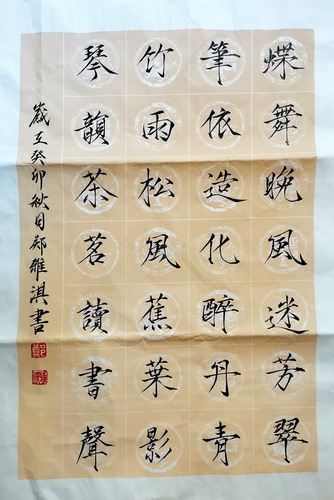 蝶舞晚風迷芳翠
筆依造化醉丹青
竹雨松風蕉葉影
琴韻茶茗讀書聲
歲在癸卯秋月鄭雅淇書